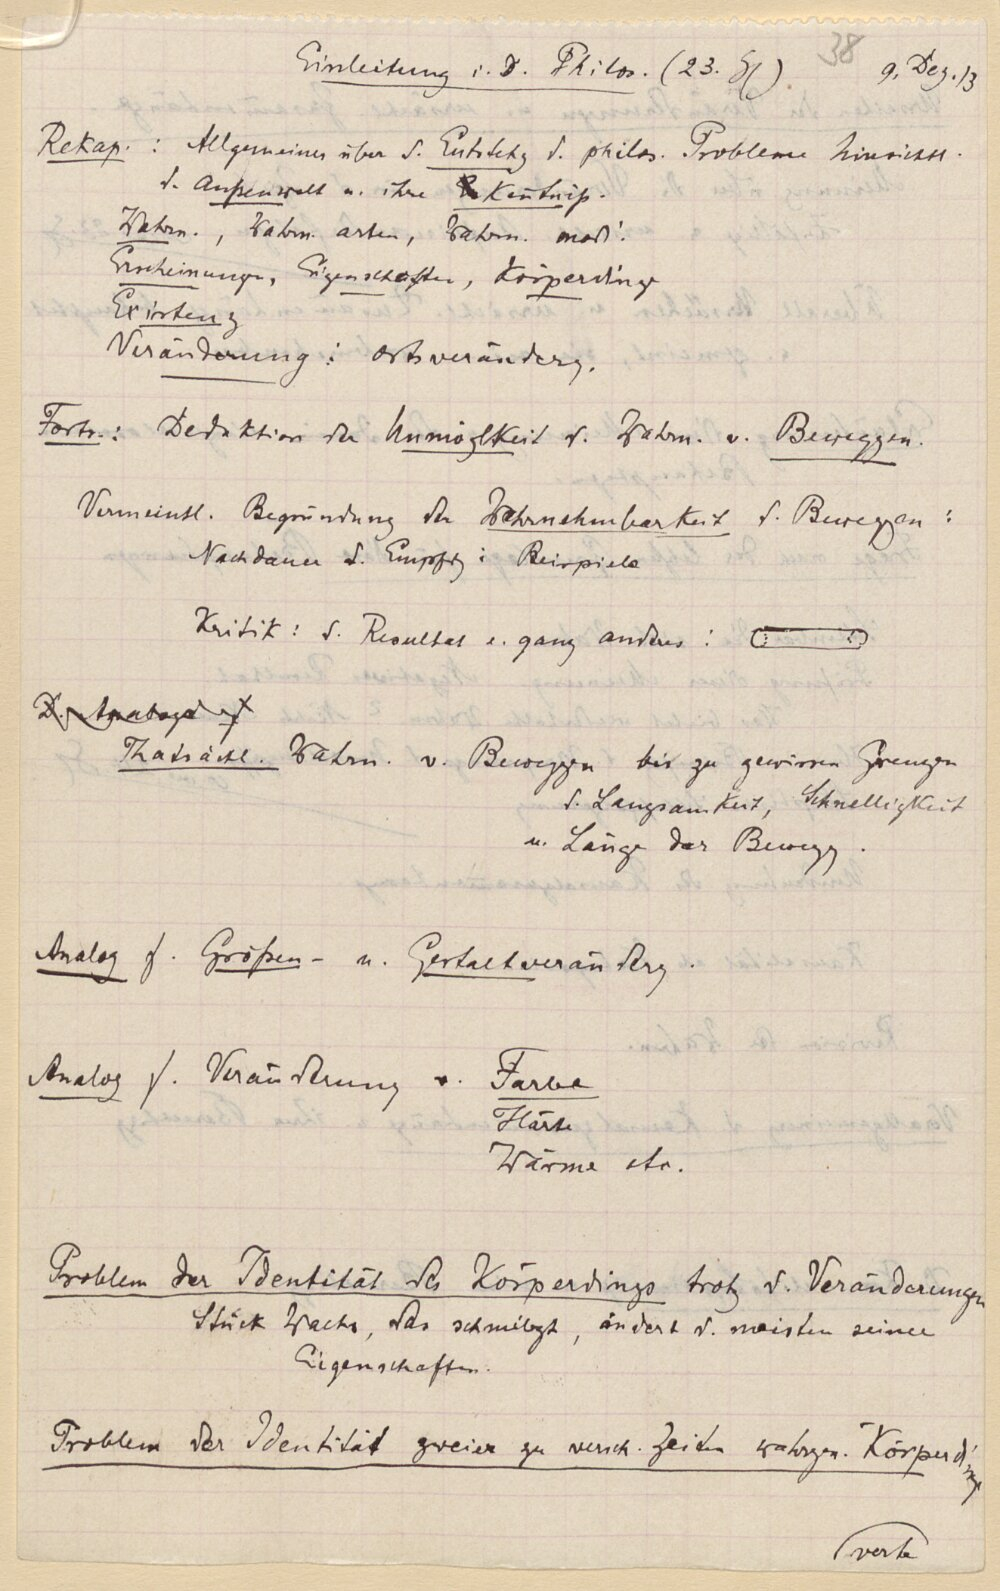 38
Einleitung i. D. Philos. (23. St) 9. Dez. 13
Rekap. : Allgemeines über d. Entstehg d. philos. Probleme hinsichtl.
d. Außenwelt u. ihre Kentniß.
Wahrn., Wahrn. arten, Wahrn. modi.
Erscheinungen, Eigenschaften, Körperdinge
Existenz
Veränderung : Ortsveränderg.
Forts.: Deduktion der Unmöglkeit d. Wahrn. v. Beweggen.
Vermeintl. Begründung der Wahrnehmbarkeit d. Beweggen :
Nachdauer d. Empfdg : Beispiele
Kritik : d. Resultat e. ganz anderes :
D. Analoge f
Thatsächl. Wahrn. v. Beweggen bis zu gewissen Grenzen
d. Langsamkeit, Schnelligkeit
u. Länge der Bewegg.
Analog f. Größen- u. Gestaltveränderg.
Analog f. Veränderung v. Farbe
Härte
Wärme etc.
Problem der Identität des Körperdings trotz d. Veränderungen
Stück Wachs, das schmilzt, ändert d. meisten seiner
Eigenschaften.
Problem der Identität zweier zu versch. Zeiten wahrgen. Körperdinge
verte